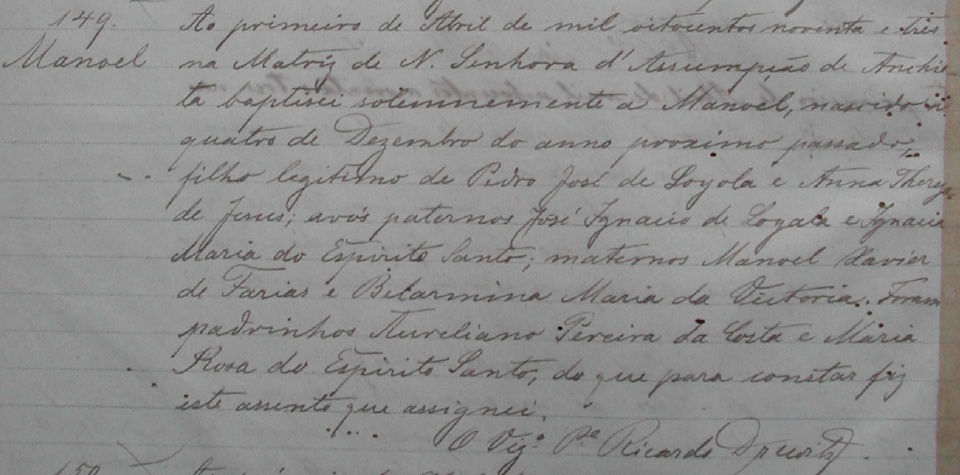 149.
Manoel
Ao primeiro de Abril de mil oitocentos noventa e tres
na Matriz de N. Senhora d'Assumpção de Anchie-
ta baptisei solemnemente a Manoel, nascido a
quatro de Dezembro do anno proximo passado,
filho legitimo de Pedro José de Loyola e Anna Thereza
de Jesus; avós paternos José Ignacio de Loyala e Ignacia
Maria do Espirito Santo; maternos Manoel Xavier
de Farias e Belarmina Maria da Victoria. Foram
padrinhos Aureliano Pereira da Costa e Maria
Rosa do Espirito Santo, do que para constar fiz
este assento que assignei.
O Vigº Pe Ricardo
150